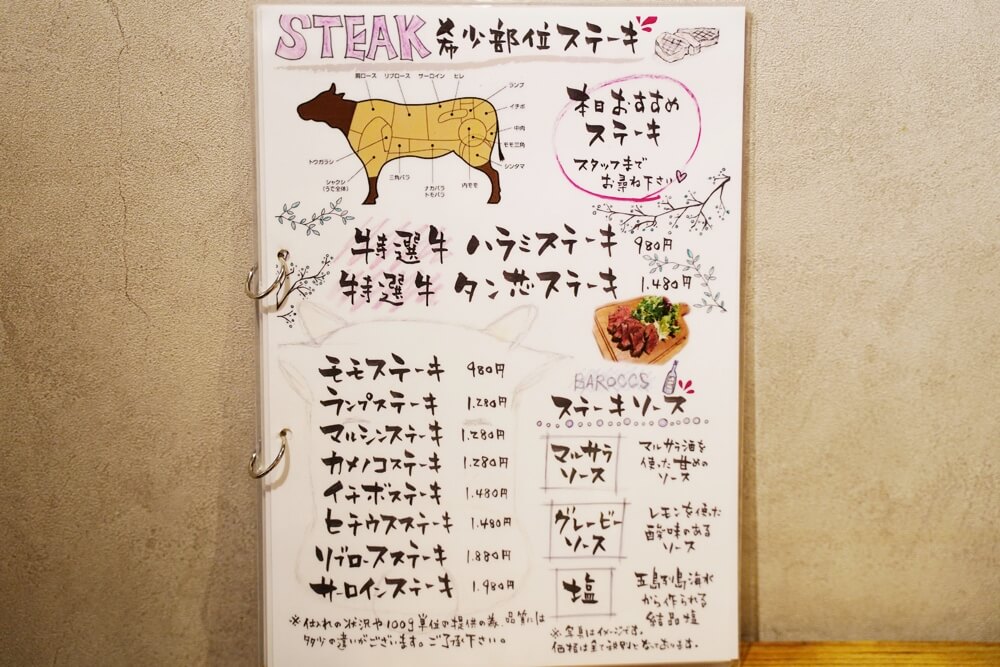 STEAK 希少部位ステーキ
肩ロース リブロース サーロイン ヒレ
ランプ
イチボ
中肉
モモ三角
シンタマ
トウガラシ
シャクシ
(うで全体)
三角バラ
ナカバラ
トモバラ
内モモ
本日おすすめ
ステーキ
スタッフまで
お尋ね下さい♡
特選牛 ハラミステーキ 980円
特選牛 タン芯ステーキ 1.480円
モモステーキ 980円
ランプステーキ 1.280円
マルシンステーキ 1.280円
カメノコステーキ 1.280円
イチボステーキ 1.480円
ヒテウスステーキ 1.480円
リブロースステーキ 1.880円
サーロインステーキ 1.980円
※仕入れの状況や100g単位の提供の為、品質には
多少の違いがございます。ご了承下さい。
BAROCCS
ステーキソース
マルサラ
ソース
マルサラ酒を
使った甘めの
ソース
グレービー
ソース
レモンを使った
酸味のある
ソース
塩
五島列島海水
から作られる
結晶塩
※写真はイメージです。
価格は全て税別となっております。